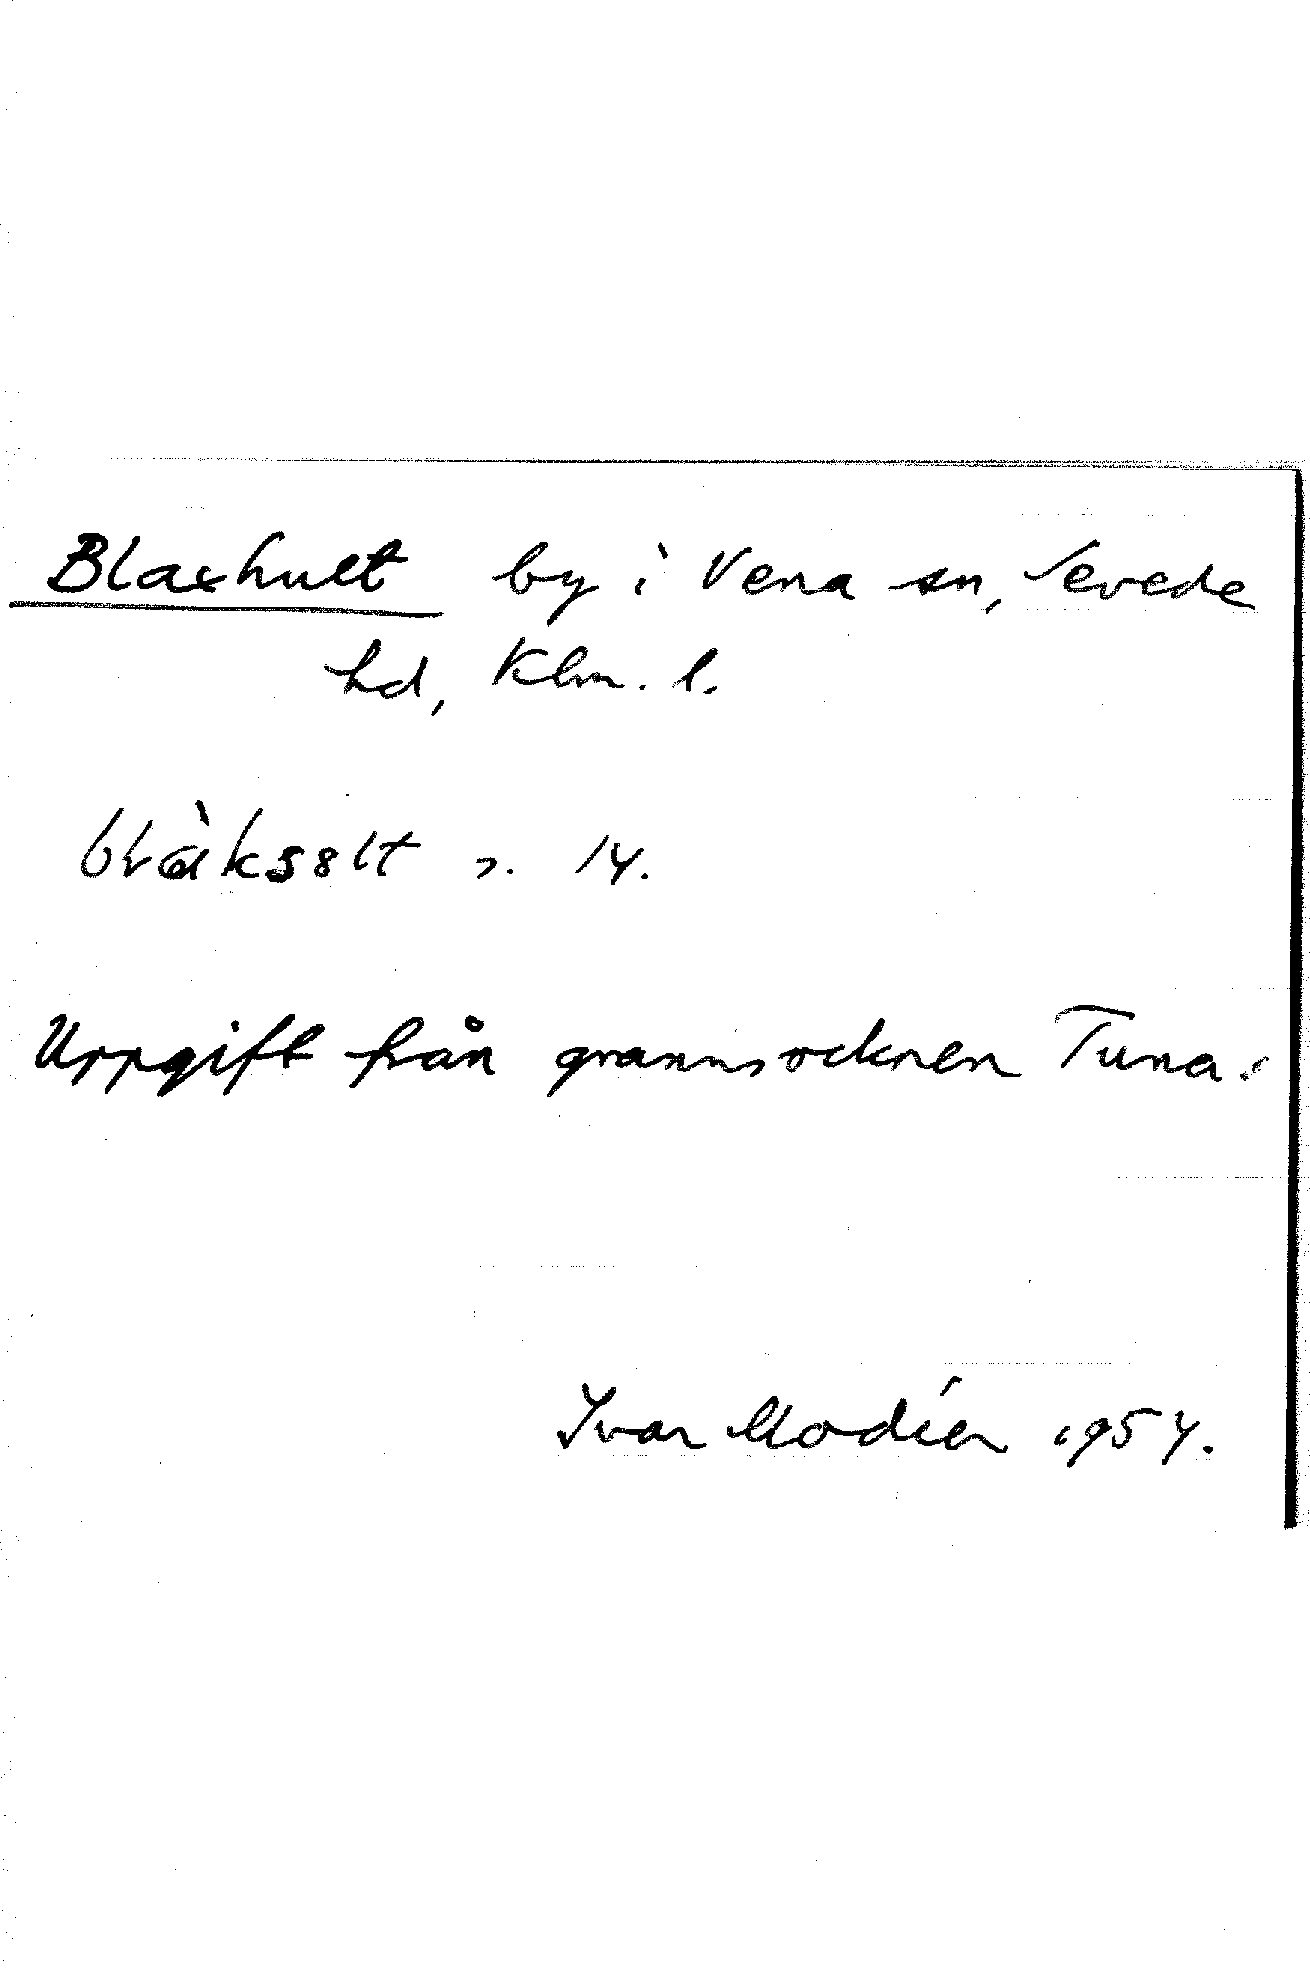 Blaxhult by i Vena sn, Sevede
hd, Klm. l.
14.
Uppgift från grannsocknen Tuna.
Ivar Modéer 1954.